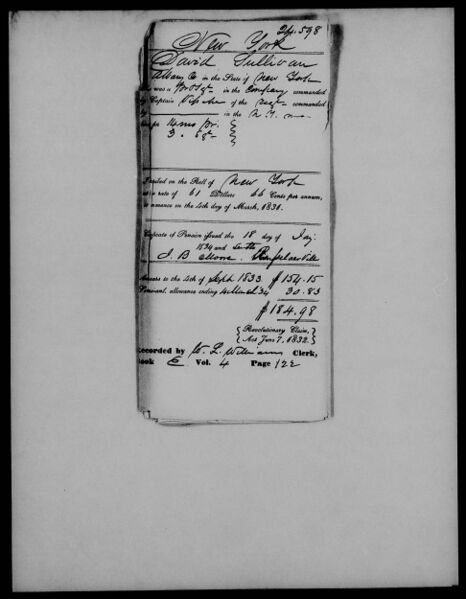 24.598
New York
David Sullivan
Albany Co in the State of New York
who was a in the Company commanded
by Captain of the Regt commanded
by in the N.Y.
3.
Inscribed on the Roll of New York
at the rate of 61 Dollars 66 Cents per annum,
to commence on the 4th day of March, 1831.
Certificate of Pension issued the 18 day of
1834 and
J. B.
Arrears to the 4th of Sept 1833 $154.15
Semi-anl. allowance ending 4 March 34 30.83
$184.98
{ Revolutionary Claim, }
{ Act June 7, 1832. }
Recorded by W. L. Williams Clerk,
Book E Vol. 4 Page 122